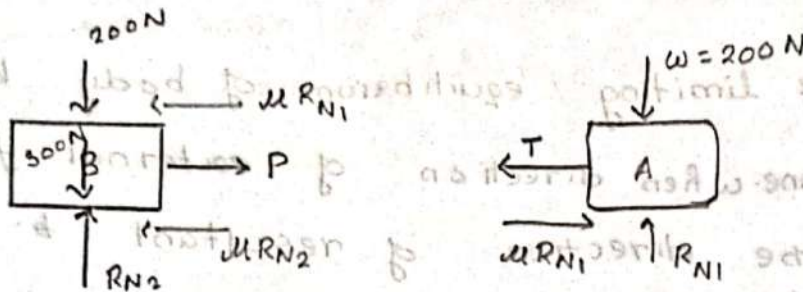 200N
μR_N1
300N
B
P
R_N2
μR_N2
ω = 200N
T
A
μR_N1
R_N1